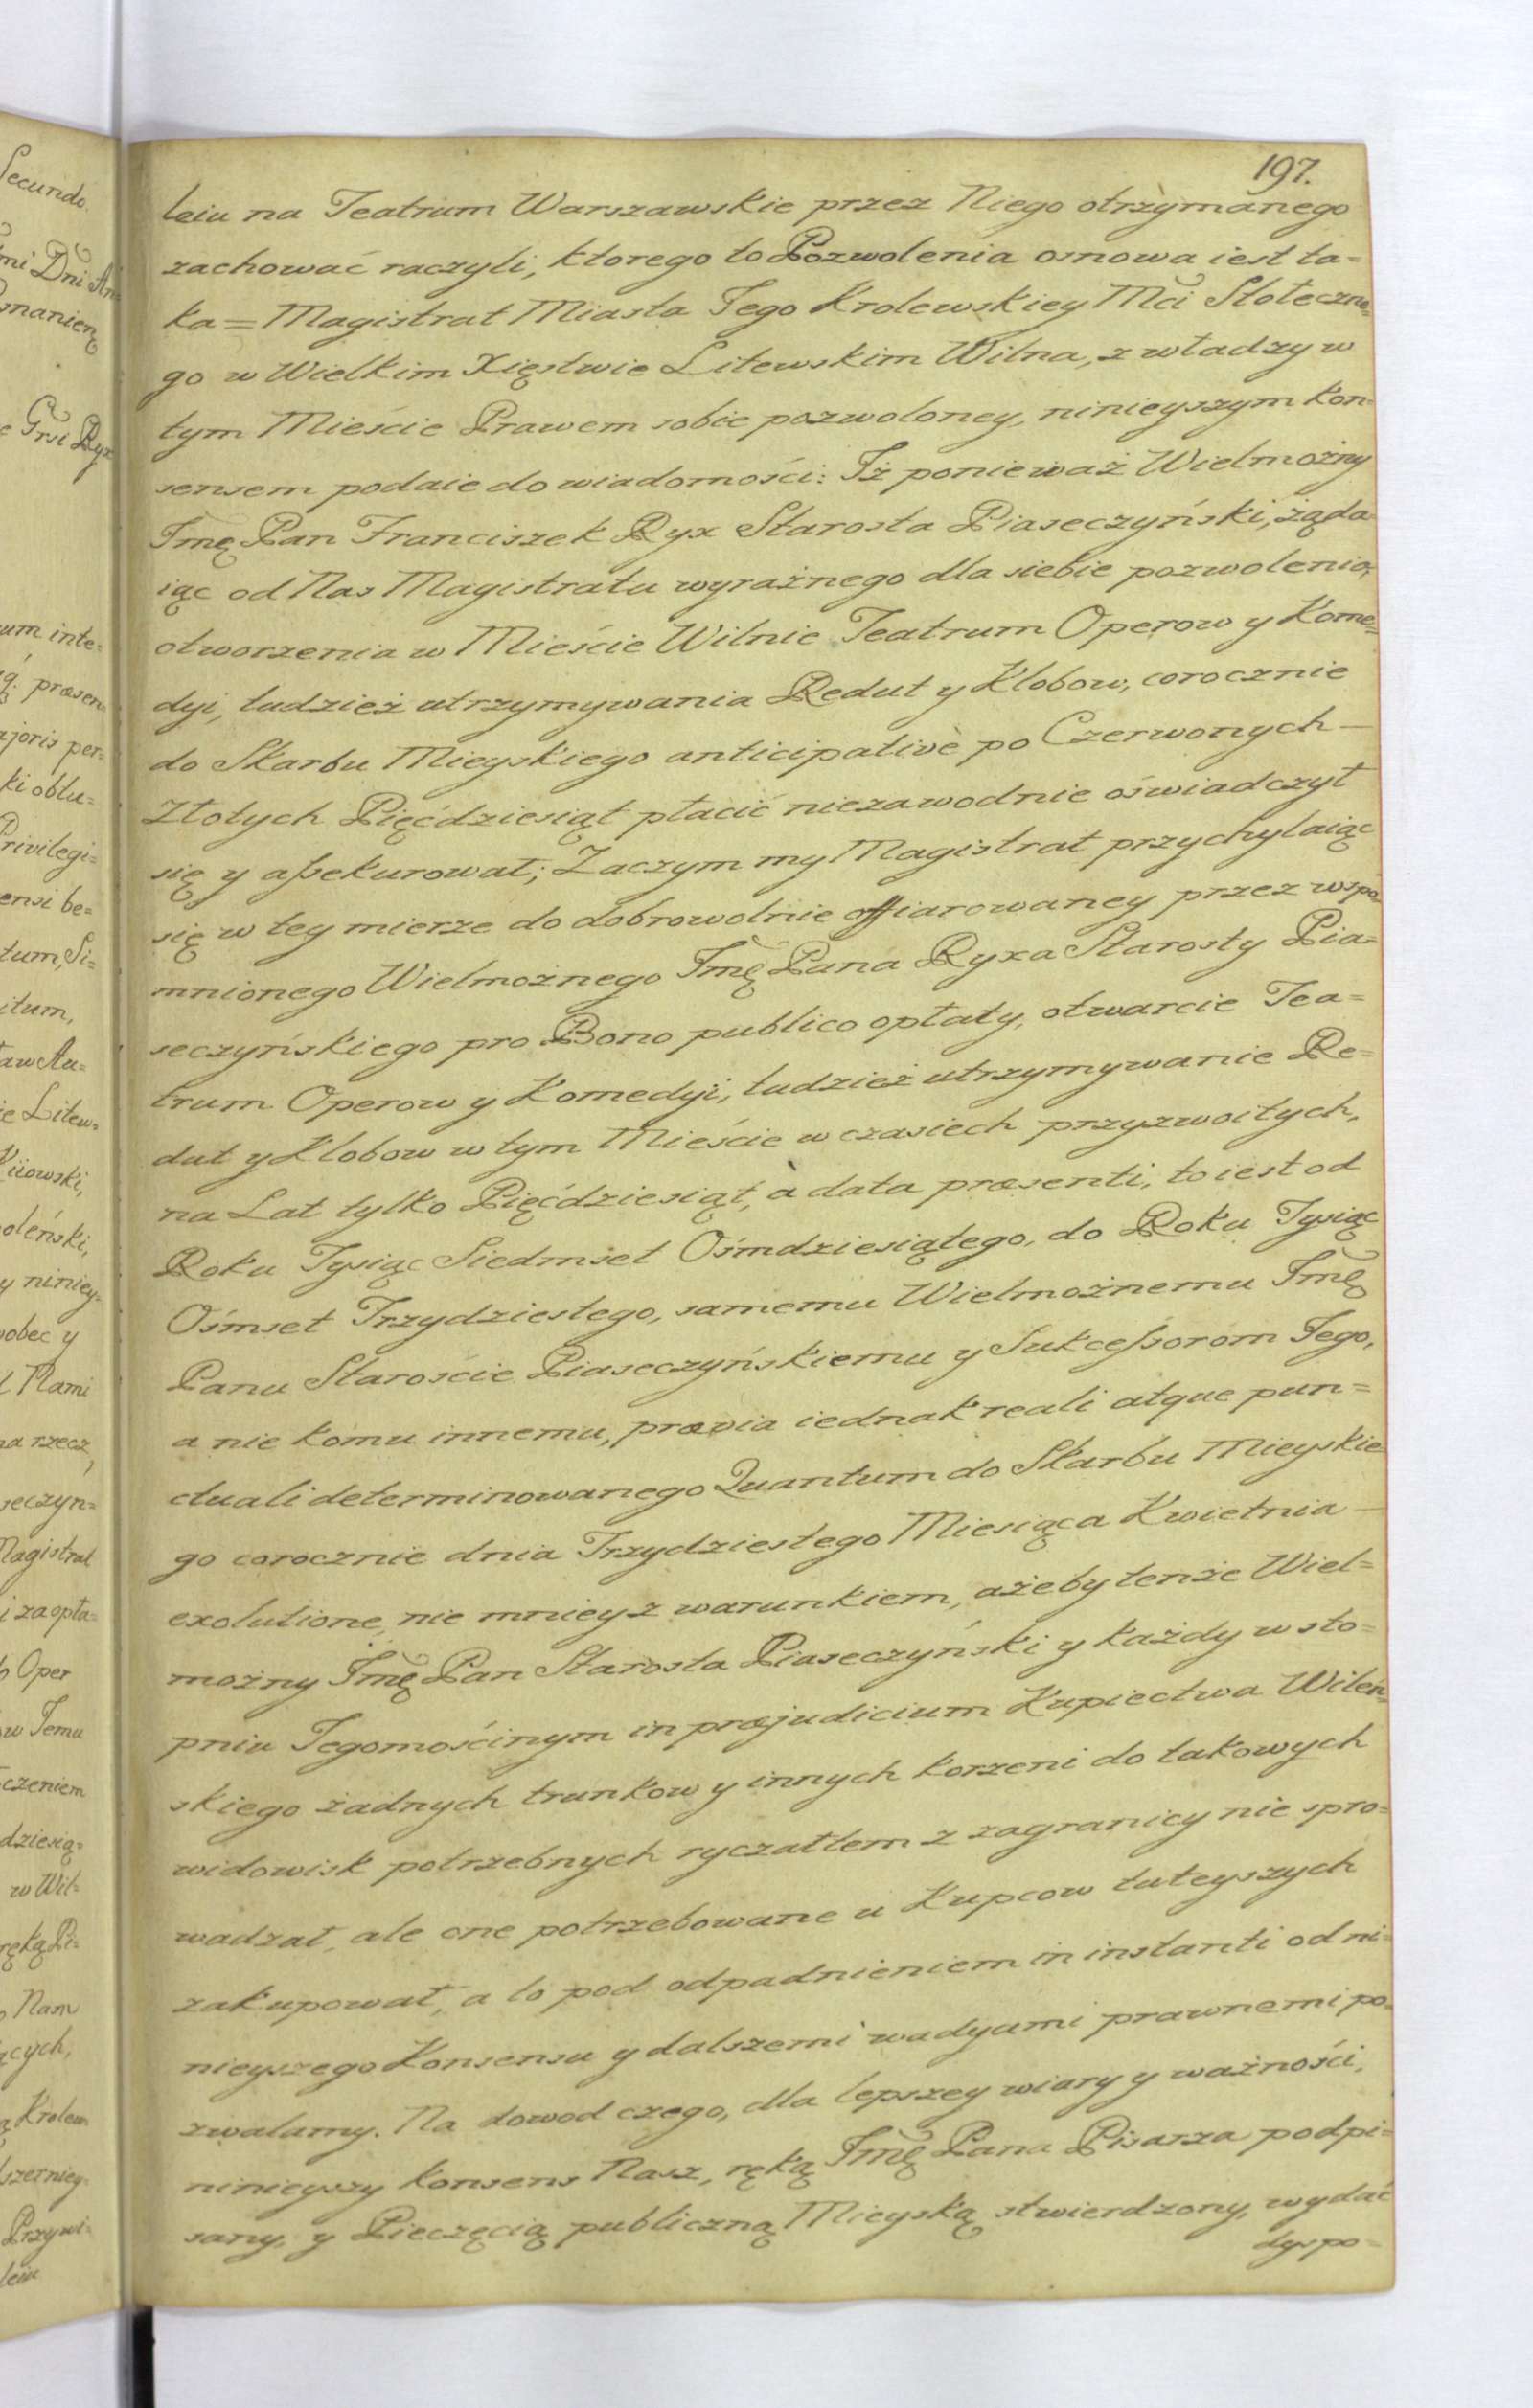 197.
leiu na Teatrum Warszawskie przez Niego otrzymanego
zachować raczyli, ktorego to Pozwolenia osnowa iest ta=
ka = Magistrat Miasta Jego Krolewskiey Mći Stołeczne=
go w Wielkim Xięstwie Litewskim Wilna, z władzy w
tym Mieście Prawem sobie pozwoloney, ninieyszym Kon=
sensem podaie do wiadomości: Iż ponieważ Wielmożny
Jmę Pan Franciszek Ryx Starosta Piaseczyński, żąda
iąc od Nas Magistratu wyraźnego dla siebie pozwolenia,
otworzenia w Mieście Wilnie Teatrum Operow y Kome=
dyi, tudzież utrzymywania Redut y Klobow, corocznie
do Skarbu Mieyskiego anticipativè po Czerwonych —
Złotych Pięćdziesiąt płacić niezawodnie oświadczył
się y aſsekurował; Zaczym my Magistrat przychylaiąc
się w tey mierze do dobrowolnie offiarowaney przez wspo
mnionego Wielmożnego Jmę Pana Ryxa Starosty Pia=
seczyńskiego pro Bono publico opłaty, otwarcie Tea=
trum Operow y Komedyi, tudzież utrzymywanie Re=
dut y Klobow w tym Mieście w czasiech przyzwoitych,
na Lat tylko Pięćdziesiąt, à data præsenti, to iest od
Roku Tysiąc Siedmset Ośmdziesiątego, do Roku Tysiąc
Ośmset Trzydziestego, samemu Wielmożnemu Jmę
Panu Staroście Piaseczyńskiemu y Sukceſsorom Jego,
a nie komu innemu, prævia iednak reali atque pun=
ctuali determinowanego Quantum do Skarbu Mieyskie
go corocznie dnia Trzydziestego Miesiąca Kwietnia —
exolutione, nie mniey z warunkiem, ażeby tenże Wiel=
możny Jmę Pan Starosta Piaseczyński y każdy w sto=
pniu Jegomościnym in præjudicium Kupiectwa Wileń=
skiego żadnych trunkow y innych korzeni do takowych
widowisk potrzebnych ryczałtem z zagranicy nie spro=
wadzał, ale one potrzebowane u Kupcow tuteyszych
zakupował, a to pod odpadnieniem in instanti od ni=
nieyszego Konsensu y dalszemi wadyami prawnemi po=
zwalamy. Na dowod czego, dla lepszey wiary y ważności,
ninieyszy Konsens Nasz, ręką Jmę Pana Pisarza podpi=
sany, y Pieczęcią publiczną Mieyską stwierdzony, wydać
dyspo=
Secundo.
um inte=
ki obtu=
Privilegi=
ensi be=
tum, Si=
itum,
aw Au=
ie Litew=
Kiiowski,
oleński,
y niniey=
obec y
Nami
na rzecz,
seczyn=
Magistrat
i za opła=
Oper
w Jemu
czeniem
dziesią=
w Wil=
Nam
ących,
Krolew
Przywi=
leiu